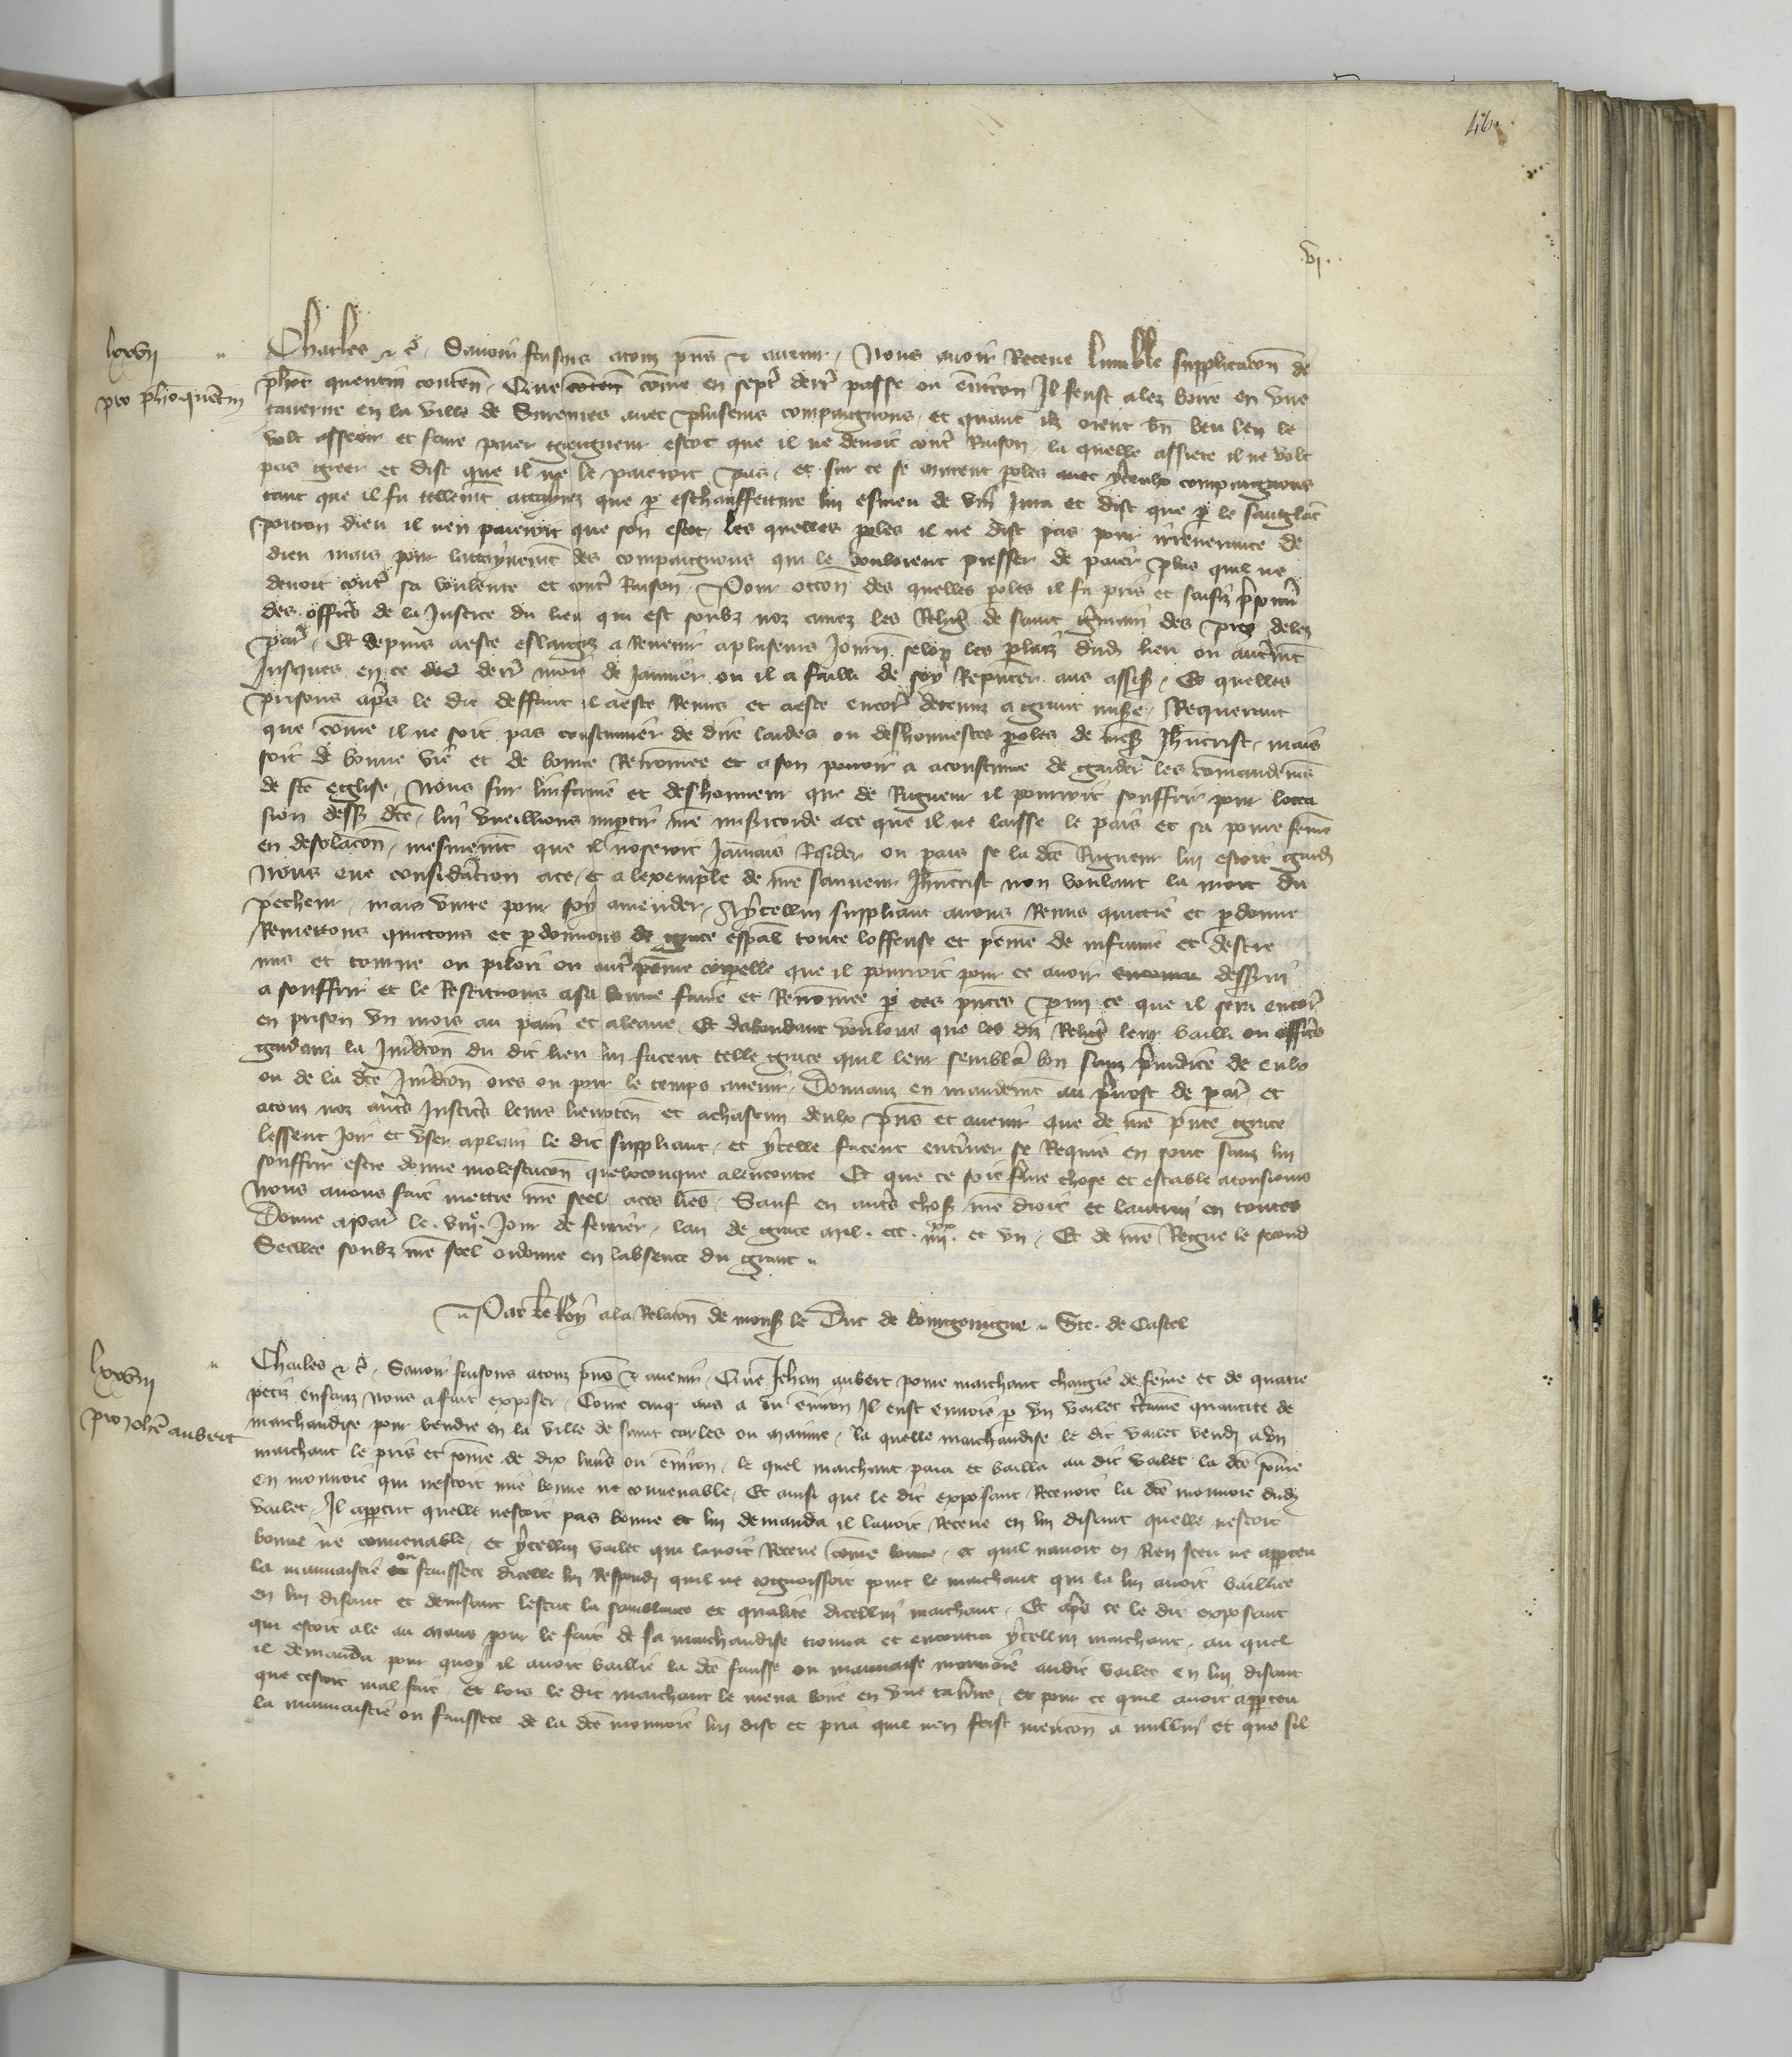 46
vi.
lxxvii
pro pho quentin
Charles &c. Savoir faisons a touz pns & avenir, Nous avoir Receue lumble supplicacon de
phot quentin conten, Que comme en sept derr passe ou environ Il feust alez boire en une
taverne en la ville de Suresnes avec plusieurs compaignons, et quant ilz orent bn beu len le
volt asseoir et faire paier greigneur escot que il ne devoit contr Raison, la quelle assiete il ne volt
pas greer et dist que il ne le paieroit pas, et sur ce se murent poles avec yceulx compaignons
tant que il fu tellemt attaynez que p eschauffeture lui esmeu de vin Jura et dist que p le sanglat
 dieu il nen paieroit que son escot, les quelles poles il ne dist pas pour irreverance de
dieu mais pour lattaynemt des compaignons qui le vouloient presser de paier plus quil ne
devoit contr sa voulente et contr Raison, Pour occon des quelles poles il fu pris et saisiz prisonn
des offics de la Justice du lieu qui est soubz noz amez les Relig de saint Germain des prez delez
par, Et depuis a este eslargiz a Revenir a plusieurs Journ selon les plaiz dud lieu ou autremt
Jusques en ce derr mois de Janvier ou il a failli de soy Repnter aus assis, Es quelles
prisons aps le dit deffaut il a este Remis et a este encor detenuz a grant mise, Requerant
que comme il ne soit pas coustumier de dire laides ou deshonnestes poles de ns Jhucrist, mais
soit de bonne vie et de bonne Renommee et a son povoir a acoustume de garder les commandemens
de ste eglise, Nous sur linfamie et deshonneur que de Rigueur il pourroit souffrir pour locca
sion dess dce, lui vueillions impartir nre misericorde a ce que il ne laisse le pais et sa povre feme
en desolacon, mesmemt que il noseroit Jamais Resider ou pais se la dce Rigueur lui estoit gard
Nous eue consideracion a ce, et a lexemple de nre sauveur Jhucrist non voulant la mort du
pecheur, mais vivre pour soy amender, A ycellui suppliant avons Remis quictie et pdonne
Remettons quictons et pdonnons de grace espal toute loffense et peine de infamie et destre
mis et tourne ou pilori ou autr peine corpelle que il pourroit pour ce avoir desservi
a souffrir et le Restituons a sa bonne fame et Renommee p ces pntes Parmi ce que il sera encor
en prison un mois au pain et a leaue, Et dabondant voulons que les diz Relig leur bailli ou offics
gardanz la Juridicon du dit lieu lui facent telle grace quil leur semblera bon sanz prejudice de eulx
ou de la dce Juridicon ores ou pour le temps avenir, Donnanz en mandemt au prevost de par et
a touz noz autrs Justiciers leurs lieuxten et a chascun deulx pns et avenir que de nre pnte grace
lessent Joir et user a plain le dit suppliant, et ycelle facent enteriner se Requis en sont sanz lui
souffrir estre donne molestacon quelxconque a lencontre Et que ce soit ferme chose et estable a tousjours
Nous avons fait mettre nre seel a ces lres, Sauf en autrs chos nre droit et lautrui en toutes
Donne a par le viiie Jour de fevrier, lan de grace mil ccc iiiixx et un, Et de nre Regne le second
Seelle soubz nre seel ordonne en labsence du grant
Par le Roy a la Relacon de mons le Duc de bourgoingne, Ste. de Castel
lxxviii
pro Johe aubert
Charles &c. Savoir faisons a touz pns & avenir, Que Jehan aubert povre marchant chargie de feme et de quatre
petiz enfanz nous a fait exposer, Come cinq ans a ou environ Il eust envoie p un varlet certaine quantite de
marchandise pour vendre en la ville de saint carles ou maine, la quelle marchandise le dit varlet vendi a un
marchant le pris et some de dix livrs ou environ, le quel marchant paia et bailla au dit varlet la dce some
en monnoie qui nestoit mie bonne ne convenable, Et ainsi que le dit exposant Recevoit la dce monnoie dud
varlet, Il appceut quelle nestoit pas bonne et lui demanda il lavoit Receue en lui disant quelle nestoit
bonne ne convenable, et ycellui varlet qui lavoit Receue come bonne, et quil navoit en Rien sceu ne appceu
la mauvaistie ou faussete dicelle lui Respondi quil ne cognoissoit point le marchant qui la lui avoit baillee
en lui disant et devisant lestat la semblance et qualite dicellui marchant, Et aps ce le dit exposant
qui estoit ale au mans pour le fait de sa marchandise trouva et encontra ycellui marchant, au quel
il demanda pour quoy il avoit baillie la dce fausse ou mauvaise monnoie audit varlet en lui disant
que cestoit mal fait, et lors le dit marchant le mena boire en une taverne, et pour ce quil avoit appceu
la mauvaistie ou faussete de la dce monnoie lui dist et pria quil nen feist mencon a nullui et que sil